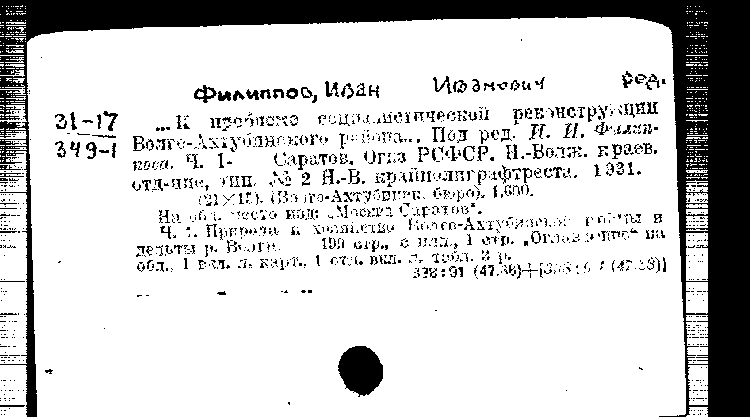 Филиппов, Иван Иванович ред.
31-17
349-1
... К проблеме социалистической реконструкции
Волго-Ахтубинского района... Под ред. И. И. Филип-
пова. Ч. 1- Саратов. Огиз РСФСР. Н.-Волж. краев.
отд-ние, тип. № 2 Н.-В. крайполиграфтреста. 1931.
(21×15). (Волго-Ахтубинск. бюро). 1.600.
На обл. место изд: „Москва Саратов".
Ч. 1. Природа и хозяйство Волго-Ахтубинской поймы и
дельты р. Волги. 199 стр., с илл., 1 стр. „Оглавление" на
обл., 1 вкл. л. карт., 1 отд. вкл. л. табл. 3 р.
338:91 (47.38)+[338:9 (47.38)]